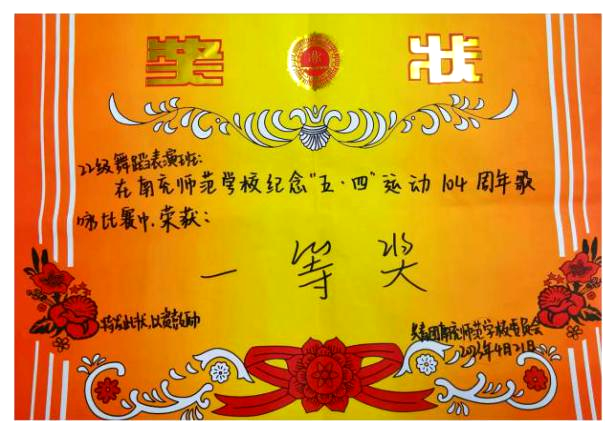 奖 状
22级舞蹈表演班:
在南充师范学校纪念“五·四”运动104周年歌
咏比赛中,荣获:
一等奖
特发此状,以资鼓励
共青团南充师范学校委员会
2023年4月21日